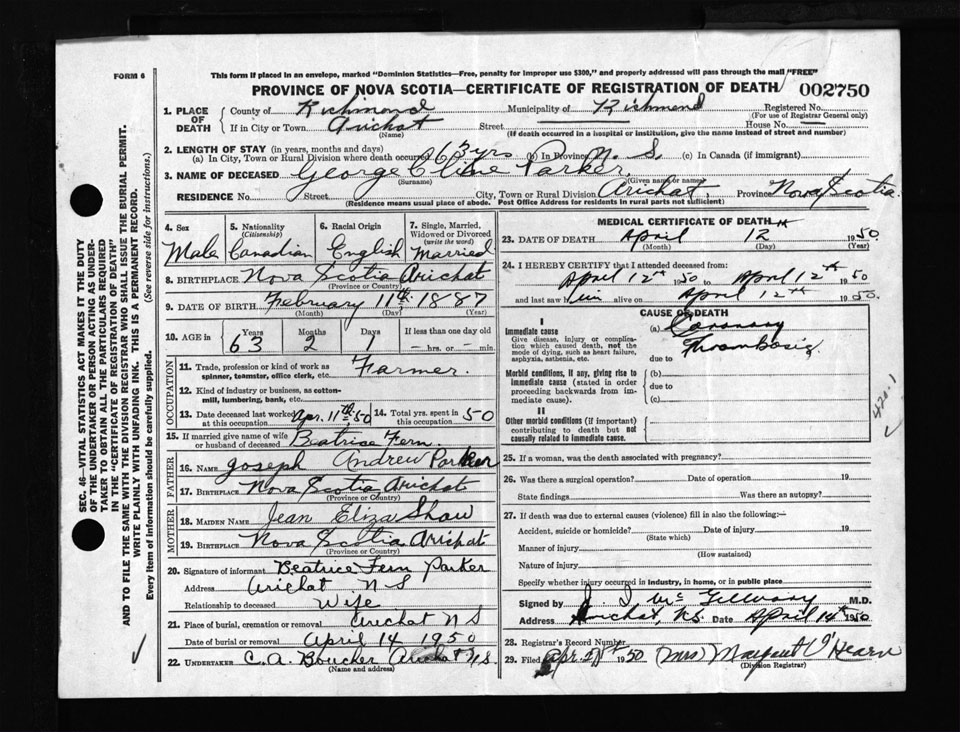 FORM 6
This form if placed in an envelope, marked "Dominion Statistics—Free, penalty for improper use $300," and properly addressed will pass through the mail "FREE"
PROVINCE OF NOVA SCOTIA—CERTIFICATE OF REGISTRATION OF DEATH 002750
1. PLACE OF DEATH County of Richmond Municipality of Richmond Registered No.
(For use of Registrar General only)
If in City or Town Arichat Street House No.
(Name) (If death occurred in a hospital or institution, give the name instead of street and number)
2. LENGTH OF STAY (in years, months and days)
(a) In City, Town or Rural Division where death occurred 63 yrs (b) In Province N. S. (c) In Canada (if immigrant)
3. NAME OF DECEASED George Cline Parker
(Surname) (Given name or names)
RESIDENCE No. Street City, Town or Rural Division Arichat, Province Nova Scotia
(Residence means usual place of abode. Post Office Address for residents in rural parts not sufficient)
4. Sex Male
5. Nationality (Citizenship) Canadian
6. Racial Origin English
7. Single, Married, Widowed or Divorced (write the word) Married
8. BIRTHPLACE Nova Scotia Arichat
(Province or Country)
9. DATE OF BIRTH February 11th 1887
(Month) (Day) (Year)
10. AGE in Years 63 Months 2 Days 1 If less than one day old — hrs. or — min.
OCCUPATION
11. Trade, profession or kind of work as spinner, teamster, office clerk, etc. Farmer.
12. Kind of industry or business, as cotton-mill, lumbering, bank, etc.
13. Date deceased last worked at this occupation Apr. 11th 50 14. Total yrs. spent in this occupation 50
15. If married give name of wife or husband of deceased Beatrice Fern.
FATHER
16. NAME Joseph Andrew Parker
17. BIRTHPLACE Nova Scotia Arichat
(Province or Country)
MOTHER
18. MAIDEN NAME Jean Eliza Shaw
19. BIRTHPLACE Nova Scotia Arichat
(Province or Country)
20. Signature of informant Beatrice Fern Parker
Address Arichat N S
Relationship to deceased Wife
21. Place of burial, cremation or removal Arichat N S
Date of burial or removal April 14 1950
22. UNDERTAKER C. A. Boucher Arichat N.S.
(Name and address)
MEDICAL CERTIFICATE OF DEATH
23. DATE OF DEATH April 12th 1950
(Month) (Day) (Year)
24. I HEREBY CERTIFY that I attended deceased from:
April 12th 1950 to April 12th 1950
and last saw him alive on April 12th 1950.
CAUSE OF DEATH
I
Immediate cause
Give disease, injury or complication which caused death, not the mode of dying, such as heart failure, asphyxia, asthenia, etc.
(a) Coronary Thrombosis.
due to
Morbid conditions, if any, giving rise to immediate cause (stated in order proceeding backwards from immediate cause)
(b)
due to
(c)
II
Other morbid conditions (if important) contributing to death but not causally related to immediate cause.
420.1
25. If a woman, was the death associated with pregnancy?
26. Was there a surgical operation? Date of operation 19
State findings Was there an autopsy?
27. If death was due to external causes (violence) fill in also the following:—
Accident, suicide or homicide? Date of injury 19
(State which)
Manner of injury
(How sustained)
Nature of injury
Specify whether injury occurred in industry, in home, or in public place
Signed by M.D.
Address Arichat, N.S. Date April 14th 1950
28. Registrar's Record Number
29. Filed Apr. 1950 (Mrs) Margaret O'Hearn
(Division Registrar)
SEC. 46—VITAL STATISTICS ACT MAKES IT THE DUTY
OF THE UNDERTAKER OR PERSON ACTING AS UNDER-
TAKER TO OBTAIN ALL THE PARTICULARS REQUIRED
IN THE "CERTIFICATE OF REGISTRATION OF DEATH"
AND TO FILE THE SAME WITH THE DIVISION REGISTRAR WHO SHALL ISSUE THE BURIAL PERMIT.
WRITE PLAINLY WITH UNFADING INK. THIS IS A PERMANENT RECORD.
Every item of information should be carefully supplied. (See reverse side for instructions.)